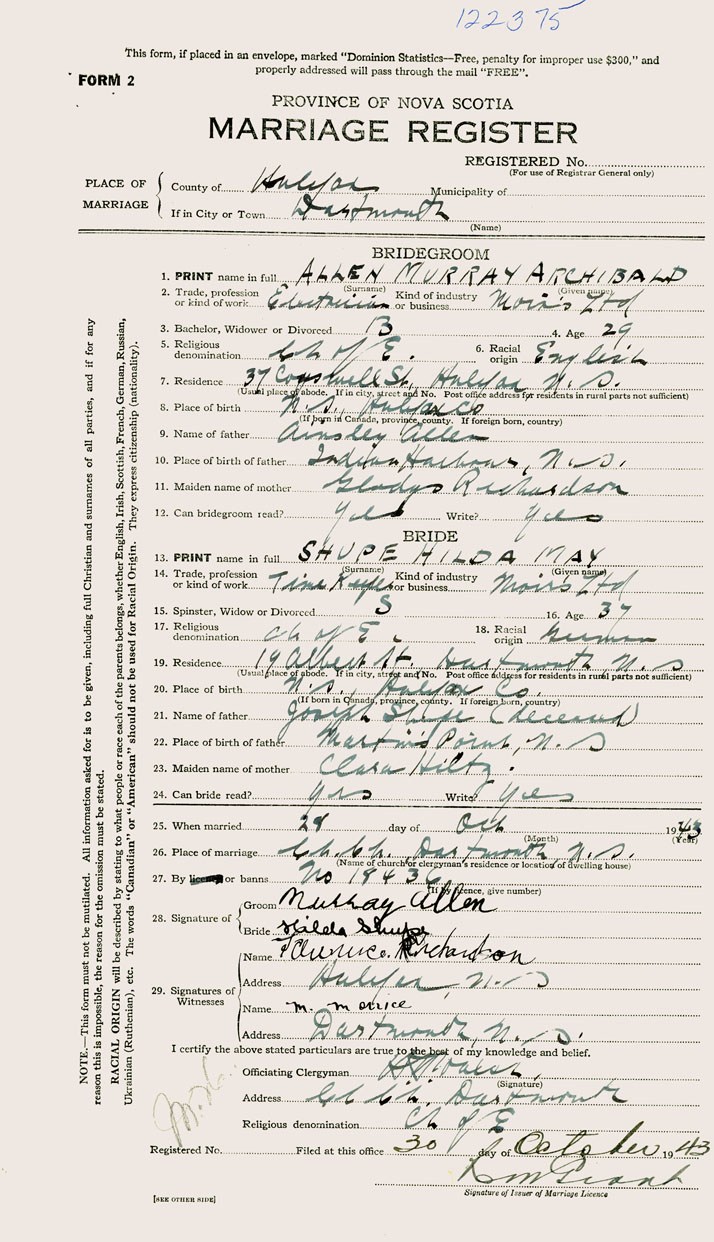 122375
This form, if placed in an envelope, marked "Dominion Statistics—Free, penalty for improper use $300," and
properly addressed will pass through the mail "FREE".
FORM 2
PROVINCE OF NOVA SCOTIA
MARRIAGE REGISTER
REGISTERED No.
(For use of Registrar General only)
PLACE OF MARRIAGE
County of Halifax Municipality of
If in City or Town Dartmouth
(Name)
BRIDEGROOM
1. PRINT name in full ALLEN MURRAY ARCHIBALD
(Surname) (Given name)
2. Trade, profession or kind of work Electrician Kind of industry or business Moir's Ltd
3. Bachelor, Widower or Divorced B 4. Age 29
5. Religious denomination Ch of E. 6. Racial origin English
7. Residence 37 Cogswell St., Halifax N.S.
(Usual place of abode. If in city, street and No. Post office address for residents in rural parts not sufficient)
8. Place of birth N.S., Halifax Co
(If born in Canada, province, county. If foreign born, country)
9. Name of father Ainsley Allen
10. Place of birth of father Indian Harbour, N.S.
11. Maiden name of mother Gladys Richardson
12. Can bridegroom read? Yes Write? Yes
BRIDE
13. PRINT name in full SHUPE HILDA MAY
(Surname) (Given name)
14. Trade, profession or kind of work Time Keeper Kind of industry or business Moirs Ltd
15. Spinster, Widow or Divorced S 16. Age 37
17. Religious denomination Ch of E. 18. Racial origin German
19. Residence 19 Albert St. Dartmouth N.S
(Usual place of abode. If in city, street and No. Post office address for residents in rural parts not sufficient)
20. Place of birth N.S., Halifax Co.
(If born in Canada, province, county. If foreign born, country)
21. Name of father Joseph Shupe (deceased)
22. Place of birth of father Martin's Point, N.S
23. Maiden name of mother Clara Hiltz.
24. Can bride read? Yes Write? Yes
25. When married 29 day of Oct 1943
(Month) (Year)
26. Place of marriage Ch. Ch. Dartmouth N.S.
(Name of church or clergyman's residence or location of dwelling house)
27. By or banns No 18436
(If by licence, give number)
28. Signature of
Groom Murray Allen
Bride Hilda Shupe
29. Signatures of Witnesses
Name Florence Richardson
Address Halifax, N.S
Name M. Merrice
Address Dartmouth, N.S.
I certify the above stated particulars are true to the best of my knowledge and belief.
Officiating Clergyman
(Signature)
Address Ch Ch. Dartmouth
Religious denomination Ch of E
Registered No. Filed at this office 30 day of October 1943
Signature of Issuer of Marriage Licence
[SEE OTHER SIDE]
NOTE.—This form must not be mutilated. All information asked for is to be given, including full Christian and surnames of all parties, and if for any
reason this is impossible, the reason for the omission must be stated.
RACIAL ORIGIN will be described by stating to what people or race each of the parents belongs, whether English, Irish, Scottish, French, German, Russian,
Ukrainian (Ruthenian), etc. The words "Canadian" or "American" should not be used for Racial Origin. They express citizenship (nationality).